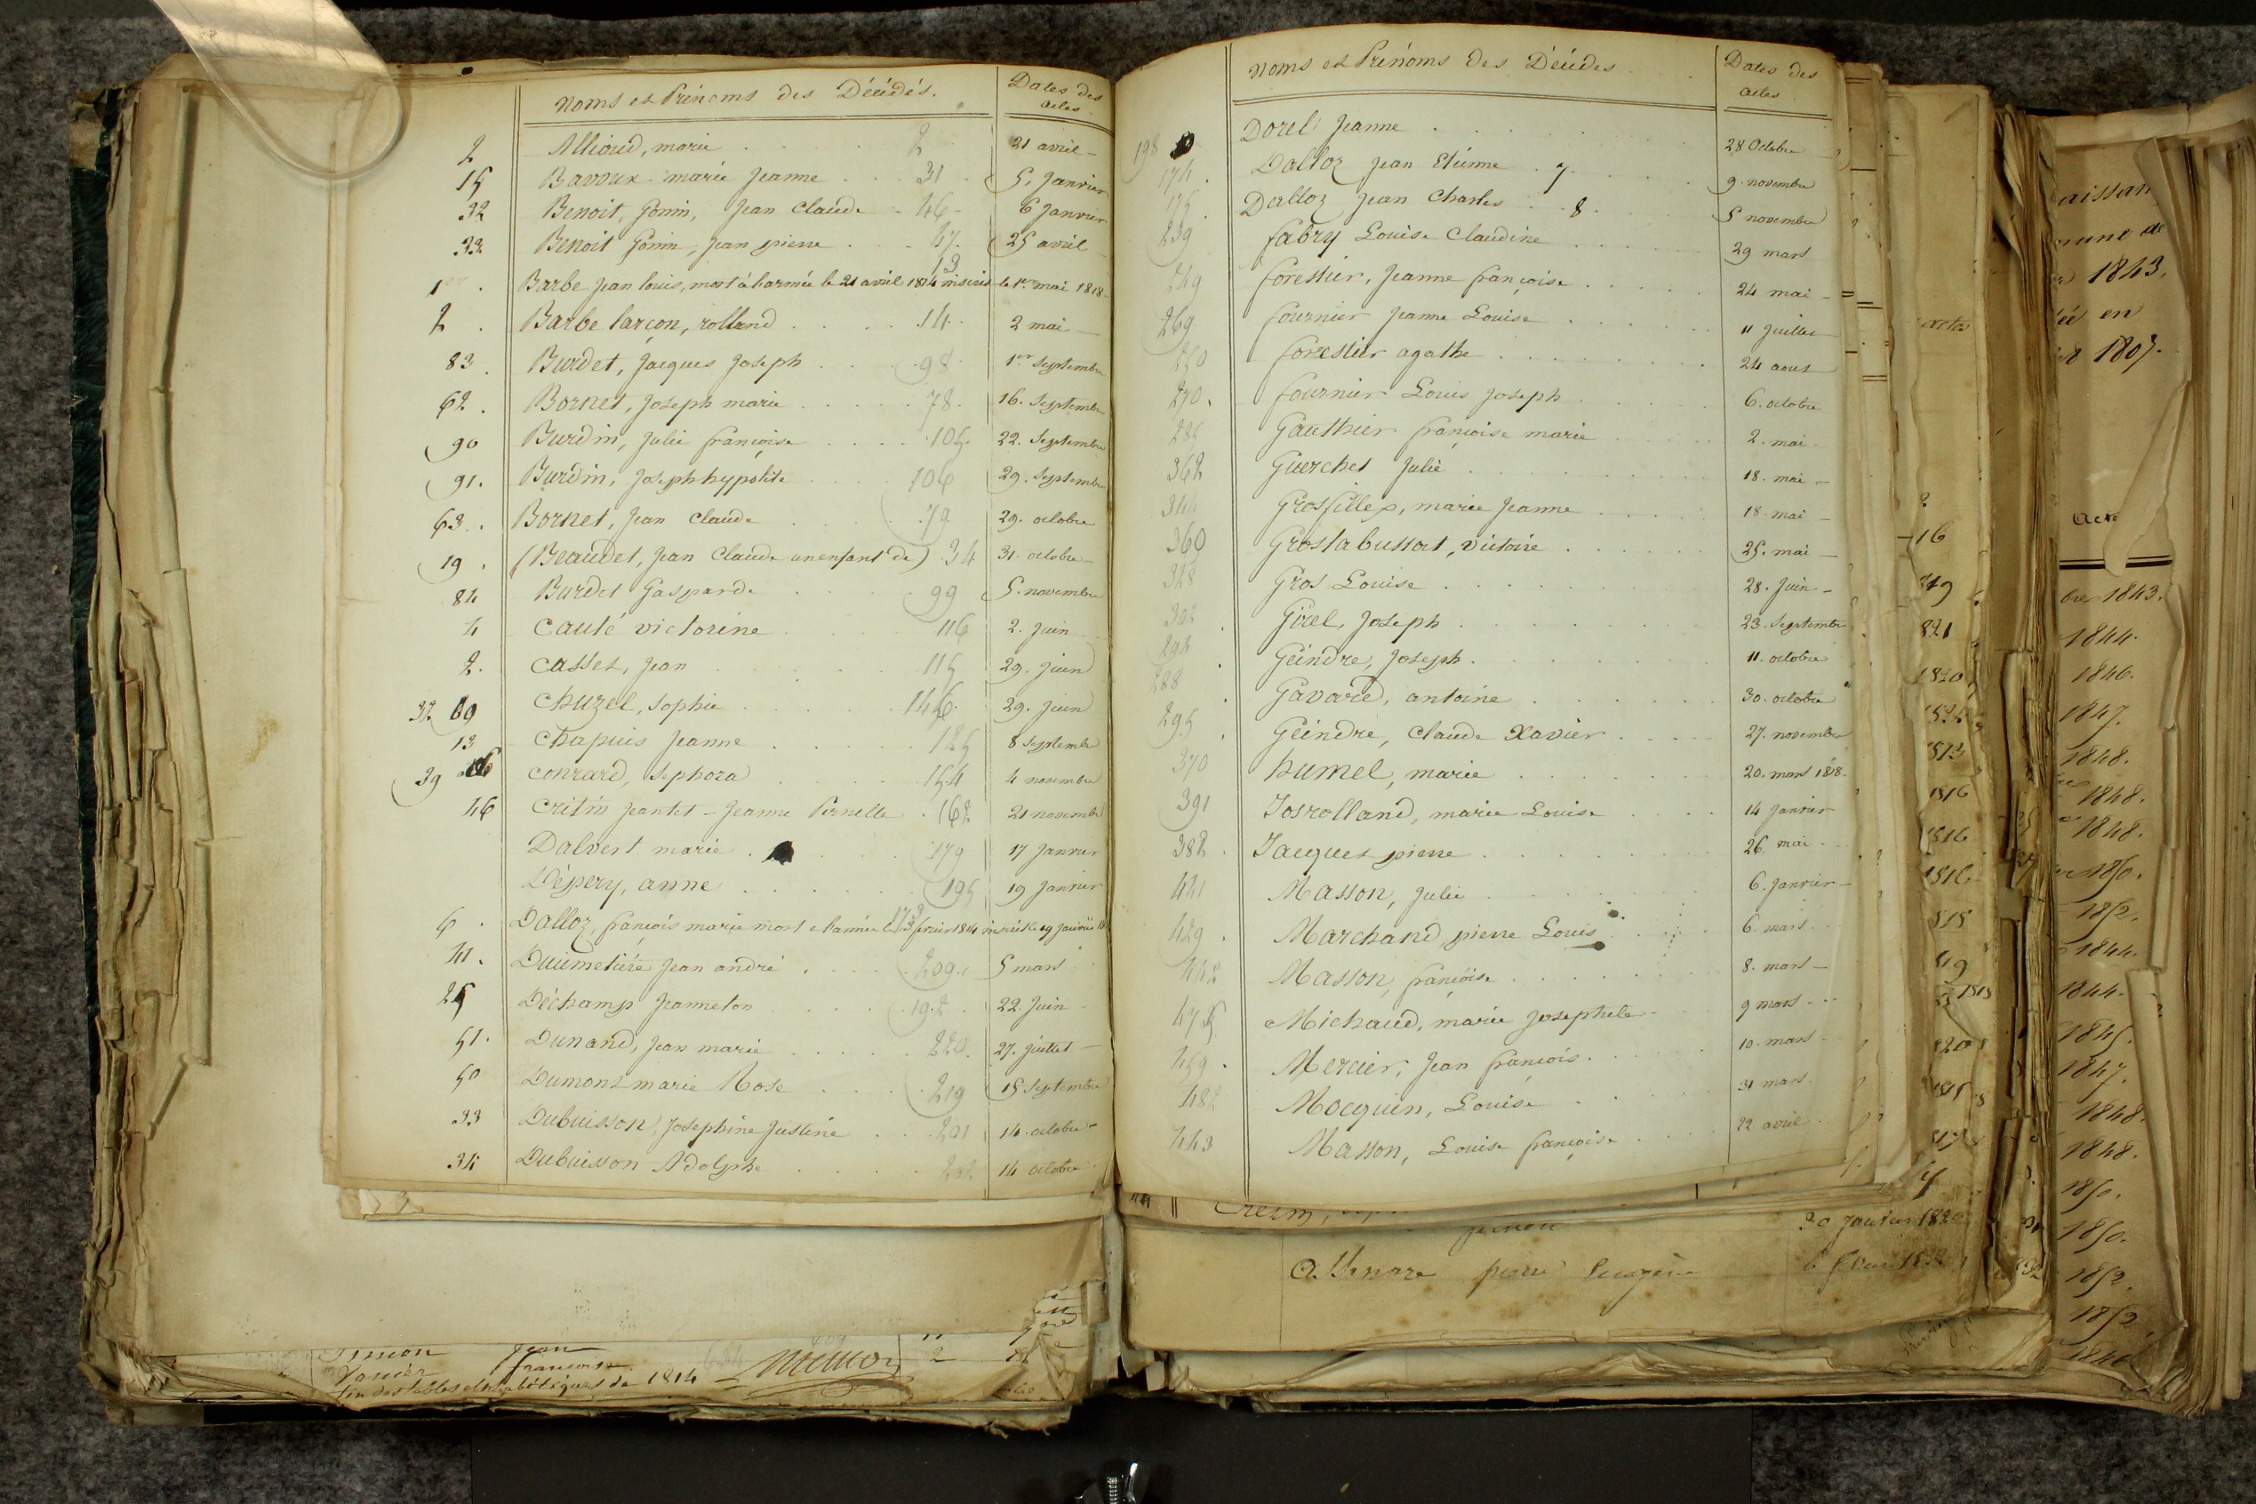 Noms et Prénoms des Décédés. Dates des actes
2 Allioud, marie 2 21 avril
15 Bavoux marie Jeanne 31 5. Janvier
32 Benoit, Gonin, Jean Claude 46 6 Janvier
33 Benoit Gonin, Jean pierre 47 25 avril
13
1er. Barbe jean louis, mort à l'armée le 21 avril 1814 inscrit le 1er mai 1818
2. Barbe larçon, rolland 14 2 mai
83. Burdet, Jacques Joseph 98 1er Septembre
62. Bornet, Joseph marie 78. 16. Septembre
90 Burdin, Julie françoise 105. 22. Septembre
91. Burdin, Joseph hypolite 106 29. Septembre
63. Bornet, Jean Claude 79 29. octobre
19. (Beaudet, Jean Claude un enfant de) 34 31. octobre
84 Burdet Gasparde 99 5. novembre
4 Cauté victorine 116 2. Juin
2. Casset, Jean 115 29. juin
32 Chuzel, Sophie 146 29. juin
13 Chapuis Jeanne 125 8 Septembre
39 Conrard, Sephora 154 4 novembre
46 Critin jeantet - Jeanne Pernelle 162 21 novembre
Dalvert marie 179 17 Janvier
Dépery, anne 195 19 Janvier
6. Dalloz, françois marie mort a l'armée le février 1814 inscrit le 29 Janvier
41. Duumetière Jean andré 209 5 mars
25 Déchamp Jeanneton 192 22. Juin
51. Dunand, Jean marie 220. 27. Juillet
50 Dumont marie Rose 219 15 Septembre
33 Dubuisson, Joséphine Justine 201 14. octobre
34 Dubuisson Adolphe 202 14 octobre
Noms et Prénoms des Décédes Dates des actes
198 Dorel Jeanne 28 Octobre
174. Dalloz Jean Etienne 7 9. novembre
175. Dalloz Jean Charles 8 5 novembre
239 fabry Louise Claudine 29 mars
249 forestier, Jeanne françoise 24 mai
269 fournier Jeanne Louise 11 Juillet
250 forestier agathe 24 aout
270. fournier Louis Joseph 6. octobre
Gauthier françoise marie 2. mai
362 Guerchet Julie 18. mai
344 Grosfillex, marie Jeanne 18. mai
360 Grostabussat, victoire 25. mai
328 Gros Louise 28. Juin
302 Girel, Joseph 23. Septembre
294 Geindre, Joseph 11. octobre
288 Gavard, antoine 30. octobre
295 Geindre, Claude Xavier 27. novembre
370 humel, marie 20. mars 1818.
391 Josrolland, marie Louise 14 Janvier
382. Jacques pierre 26 mai
441 Masson, Julie 6. Janvier
429. Marchand, pierre Louis 6. mars
442 Masson, françoise 8. mars
475 Michaud, marie Josephete 9 mars
459. Mercier, Jean françois 10. mars
482 Mocquin, Louise 31 mars
443 Masson, Louise françoise 22 avril
20 Janvier 1820
Simon Jean
françoise
fin des tables alphabétiques de 1814
1843.
1807.
16
1820
1816
1816
1816
1843.
1844.
1846.
1847.
1848.
1848.
1848.
1850.
1852.
1844.
1844.
1845.
1847.
1848.
1848.
1850.
1850.
1852.